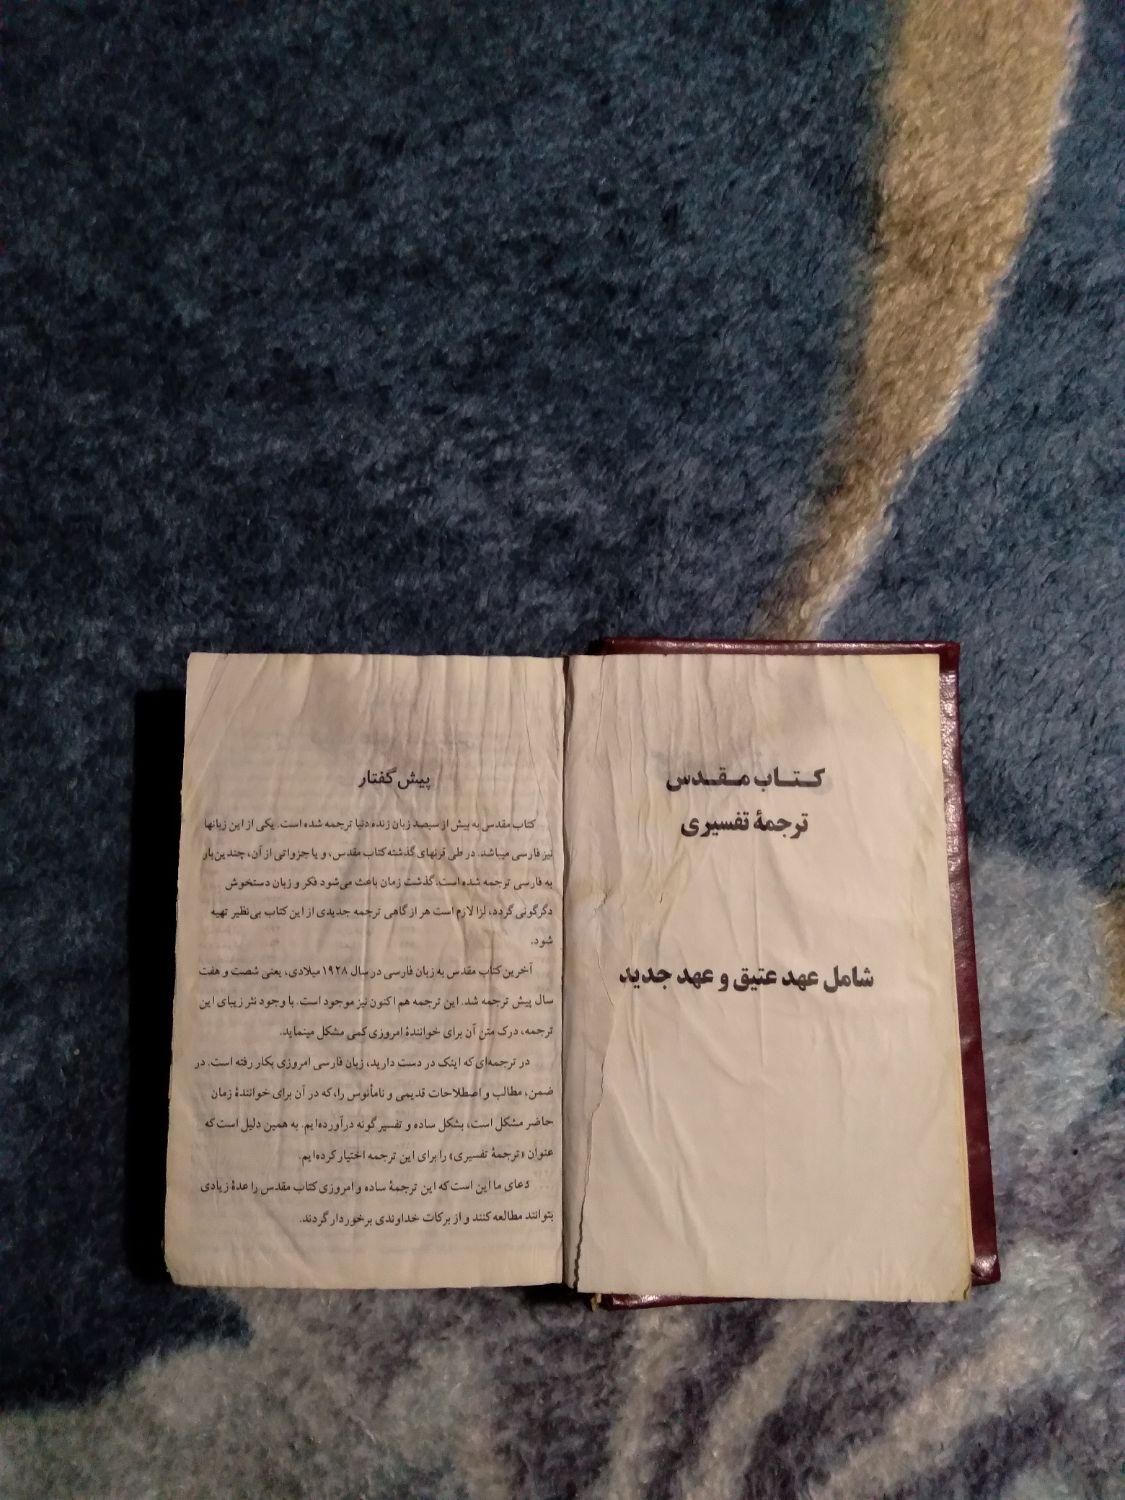 کتاب مقدس
ترجمهٔ تفسیری
شامل عهد عتیق و عهد جدید
پیش گفتار
کتاب مقدس به بیش از سیصد زبان زنده دنیا ترجمه شده است. یکی از این زبانها
نیز فارسی میباشد. در طی قرنهای گذشته کتاب مقدس، و یا جزواتی از آن، چندین بار
به فارسی ترجمه شده است. گذشت زمان باعث می‌شود فکر و زبان دستخوش
دگرگونی گردد، لزا لازم است هر از گاهی ترجمه جدیدی از این کتاب بی‌نظیر تهیه
شود.
آخرین کتاب مقدس به زبان فارسی در سال ۱۹۲۸ میلادی، یعنی شصت و هفت
سال پیش ترجمه شد. این ترجمه هم اکنون نیز موجود است. با وجود نثر زیبای این
ترجمه، درک متن آن برای خوانندهٔ امروزی کمی مشکل مینماید.
در ترجمه‌ای که اینک در دست دارید، زبان فارسی امروزی بکار رفته است. در
ضمن، مطالب و اصطلاحات قدیمی و نامأنوس را، که در آن برای خوانندهٔ زمان
حاضر مشکل است، بشکل ساده و تفسیر گونه درآورده‌ایم. به همین دلیل است که
عنوان «ترجمهٔ تفسیری» را برای این ترجمه اختیار کرده‌ایم.
دعای ما این است که این ترجمهٔ ساده و امروزی کتاب مقدس را عدهٔ زیادی
بتوانند مطالعه کنند و از برکات خداوندی برخوردار گردند.